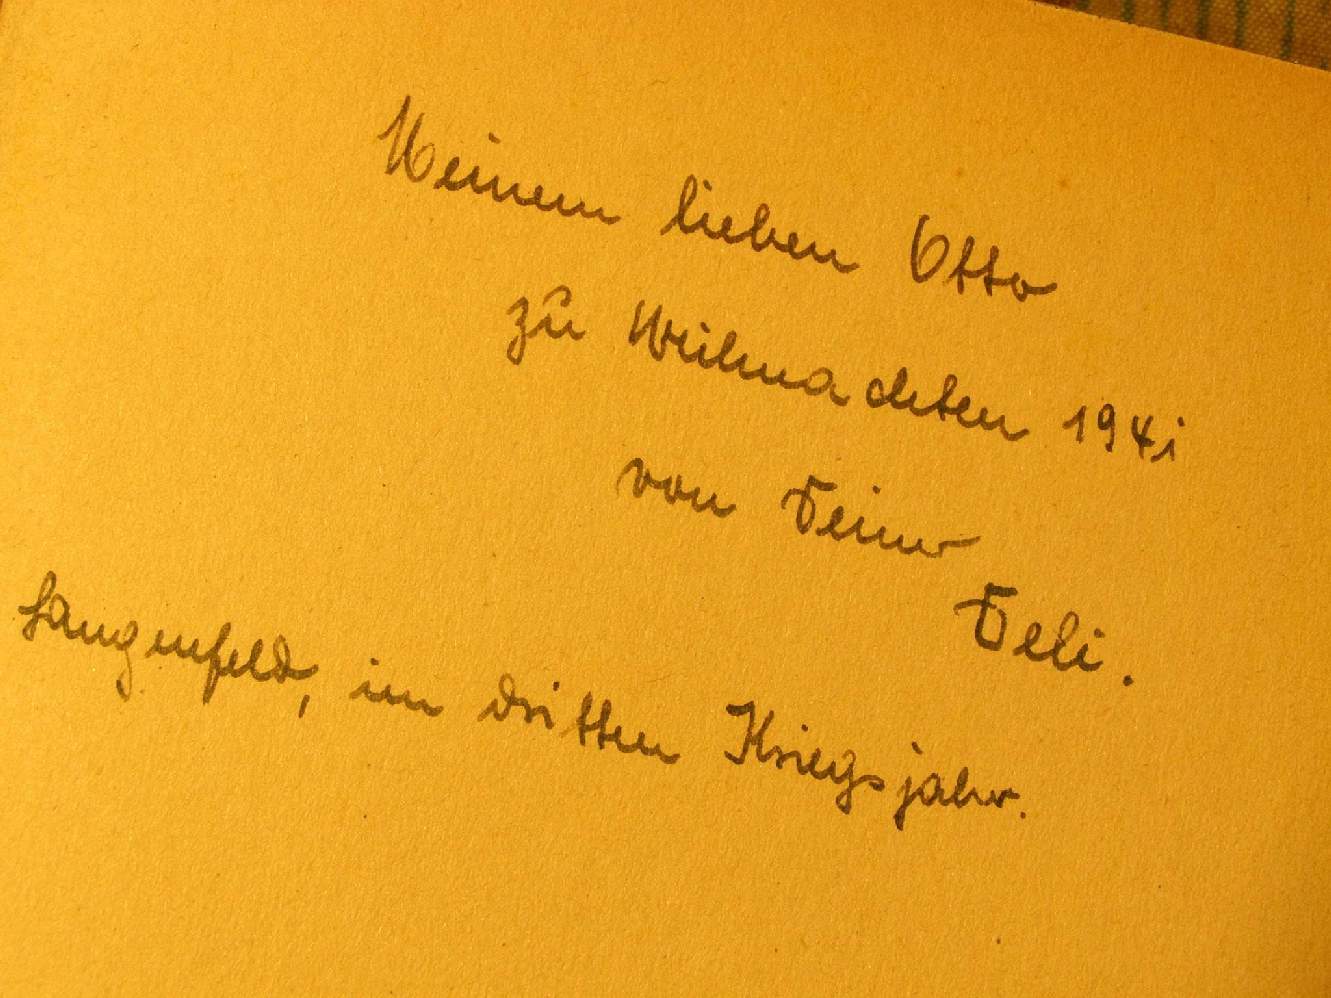 Meinem lieben Otto
zu Weihnachten 1941
von Deiner
Deli.
Langenfeld, im dritten Kriegsjahr.